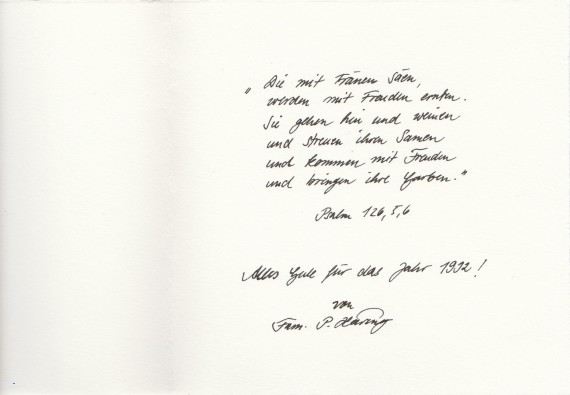 „Die mit Tränen säen,
werden mit Freuden ernten.
Sie gehen hin und weinen
und streuen ihren Samen
und kommen mit Freuden
und bringen ihre Garben."
Psalm 126,5,6
Alles Gute für das Jahr 1992!
von
Fam. P. Häring